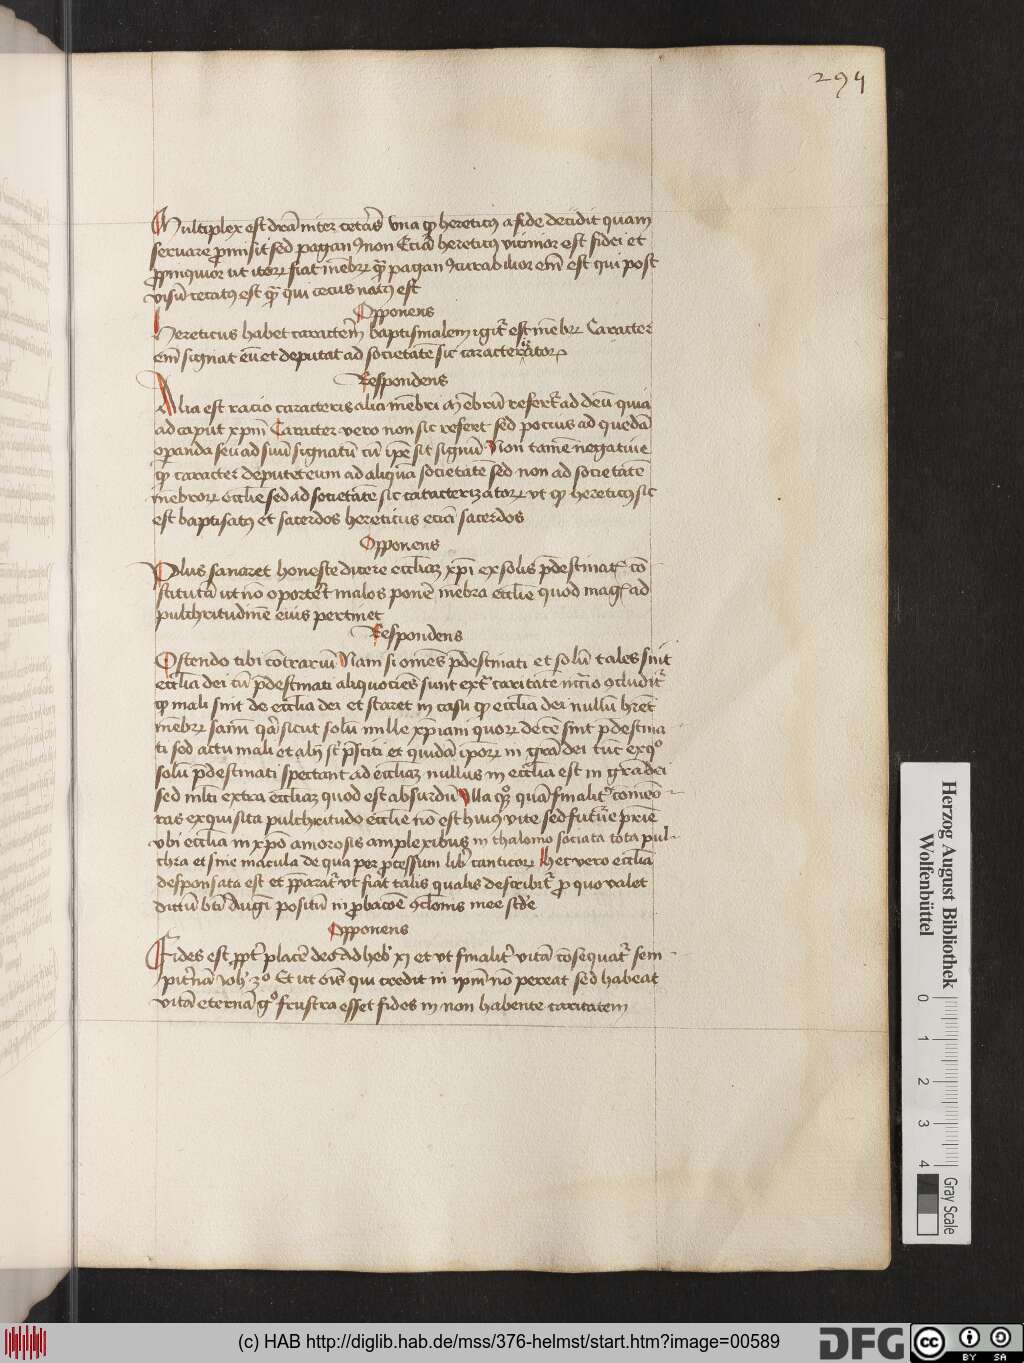 294
Multiplex est dr̄a inter cetās vna ꝙ hereticꝰ a fide decidit quam
seruare ꝓmisit sed paganꝰ non Eciā hereticꝰ vicinior est fidei et
ꝓpinquior ut iterū fiat mēbrū qȝ paganꝰ curabilior em̄ est qui post
visū cecatꝰ est qȝ qui cecus natꝰ est
Opponens
Hereticus habet caractērē baptismalem igit̄ est mēbrū Caracter
em̄ signat eū et deputat ad societatē sic caracterizatorū
Respondens
Alia est racio caracteris alia mēbri Mēbrū refert̄ ad deū quia
ad caput xpm̄ Caracter vero non sic refert sed pocius ad quedā
operanda seu ad suū signatū cū ipē sit signū Non tamē negatiue
ꝙ caracter deputet eum ad aliquā societatē sed non ad societatē
mēbrorū eccl̄ie sed ad societatē sic caracterizatorū vt ꝙ hereticꝰ sic
est baptisatꝰ et sacerdos hereticus eciā sacerdos
Opponens
Plus sonaret honeste dicere eccl̄iaȝ xp̄i ex solis p̄destinatꝭ cō
stitutā ut nō oporteret malos ponē mēbra eccl̄ie quod magꝭ ad
pulchritudinē eius pertinet
Respondens
Ostendo tibi cōtrariū Nam si om̄es p̄destinati et solū tales sint
eccl̄ia dei cū p̄destinati aliquociēs sunt extᵃ caritatē ꝯcludit̄
ꝙ mali sint de eccl̄ia dei et staret in casu ꝙ eccl̄ia dei nullū hēret
mēbrū sanū qȝ sicut solū mille xp̄iani quorū decē sint p̄destina
ti sed actu mali et alij sūt p̄sciti et quidā ipōrū in grā dei tūc ex qͦ
solū p̄destinati spectant ad eccl̄iaȝ nullus in eccl̄ia est in grā dei
sed ml̄ti extra eccl̄iaȝ quod est absurdū Illa quȝ quā finalit̄
tas exquisita pulchritudo eccl̄ie nō est huiꝰ vite sed future
vbi eccl̄ia in xp̄o amorosis amplexibus in thalomo sociata tota pul-
chra et sine macula de qua per ꝓcessum libri canticorū hec vero eccl̄ia
desponsata est et p̄parat̄ vt fiat talis qualis describit̄ ꝓ quo valet
dictū bti̅ Augi̅ positū in ꝓbacōe ꝯclonis mee scd̄e
Opponens
Fides est ꝓpt̄ placē deo ad heb̄ xj et vt finalit̄ vitā cōsequat̄ sem
pit̄nā Joh̄ 3ͦ Et ut om̄s qui credit in ip̄m nō pereat sed habeat
vitā eternā gͦ frustra esset fides in non habente caritatem
Herzog August Bibliothek
Wolfenbüttel
0 1 2 3 4
Gray Scale
(c) HAB http://diglib.hab.de/mss/376-helmst/start.htm?image=00589
DFG
CC BY SA